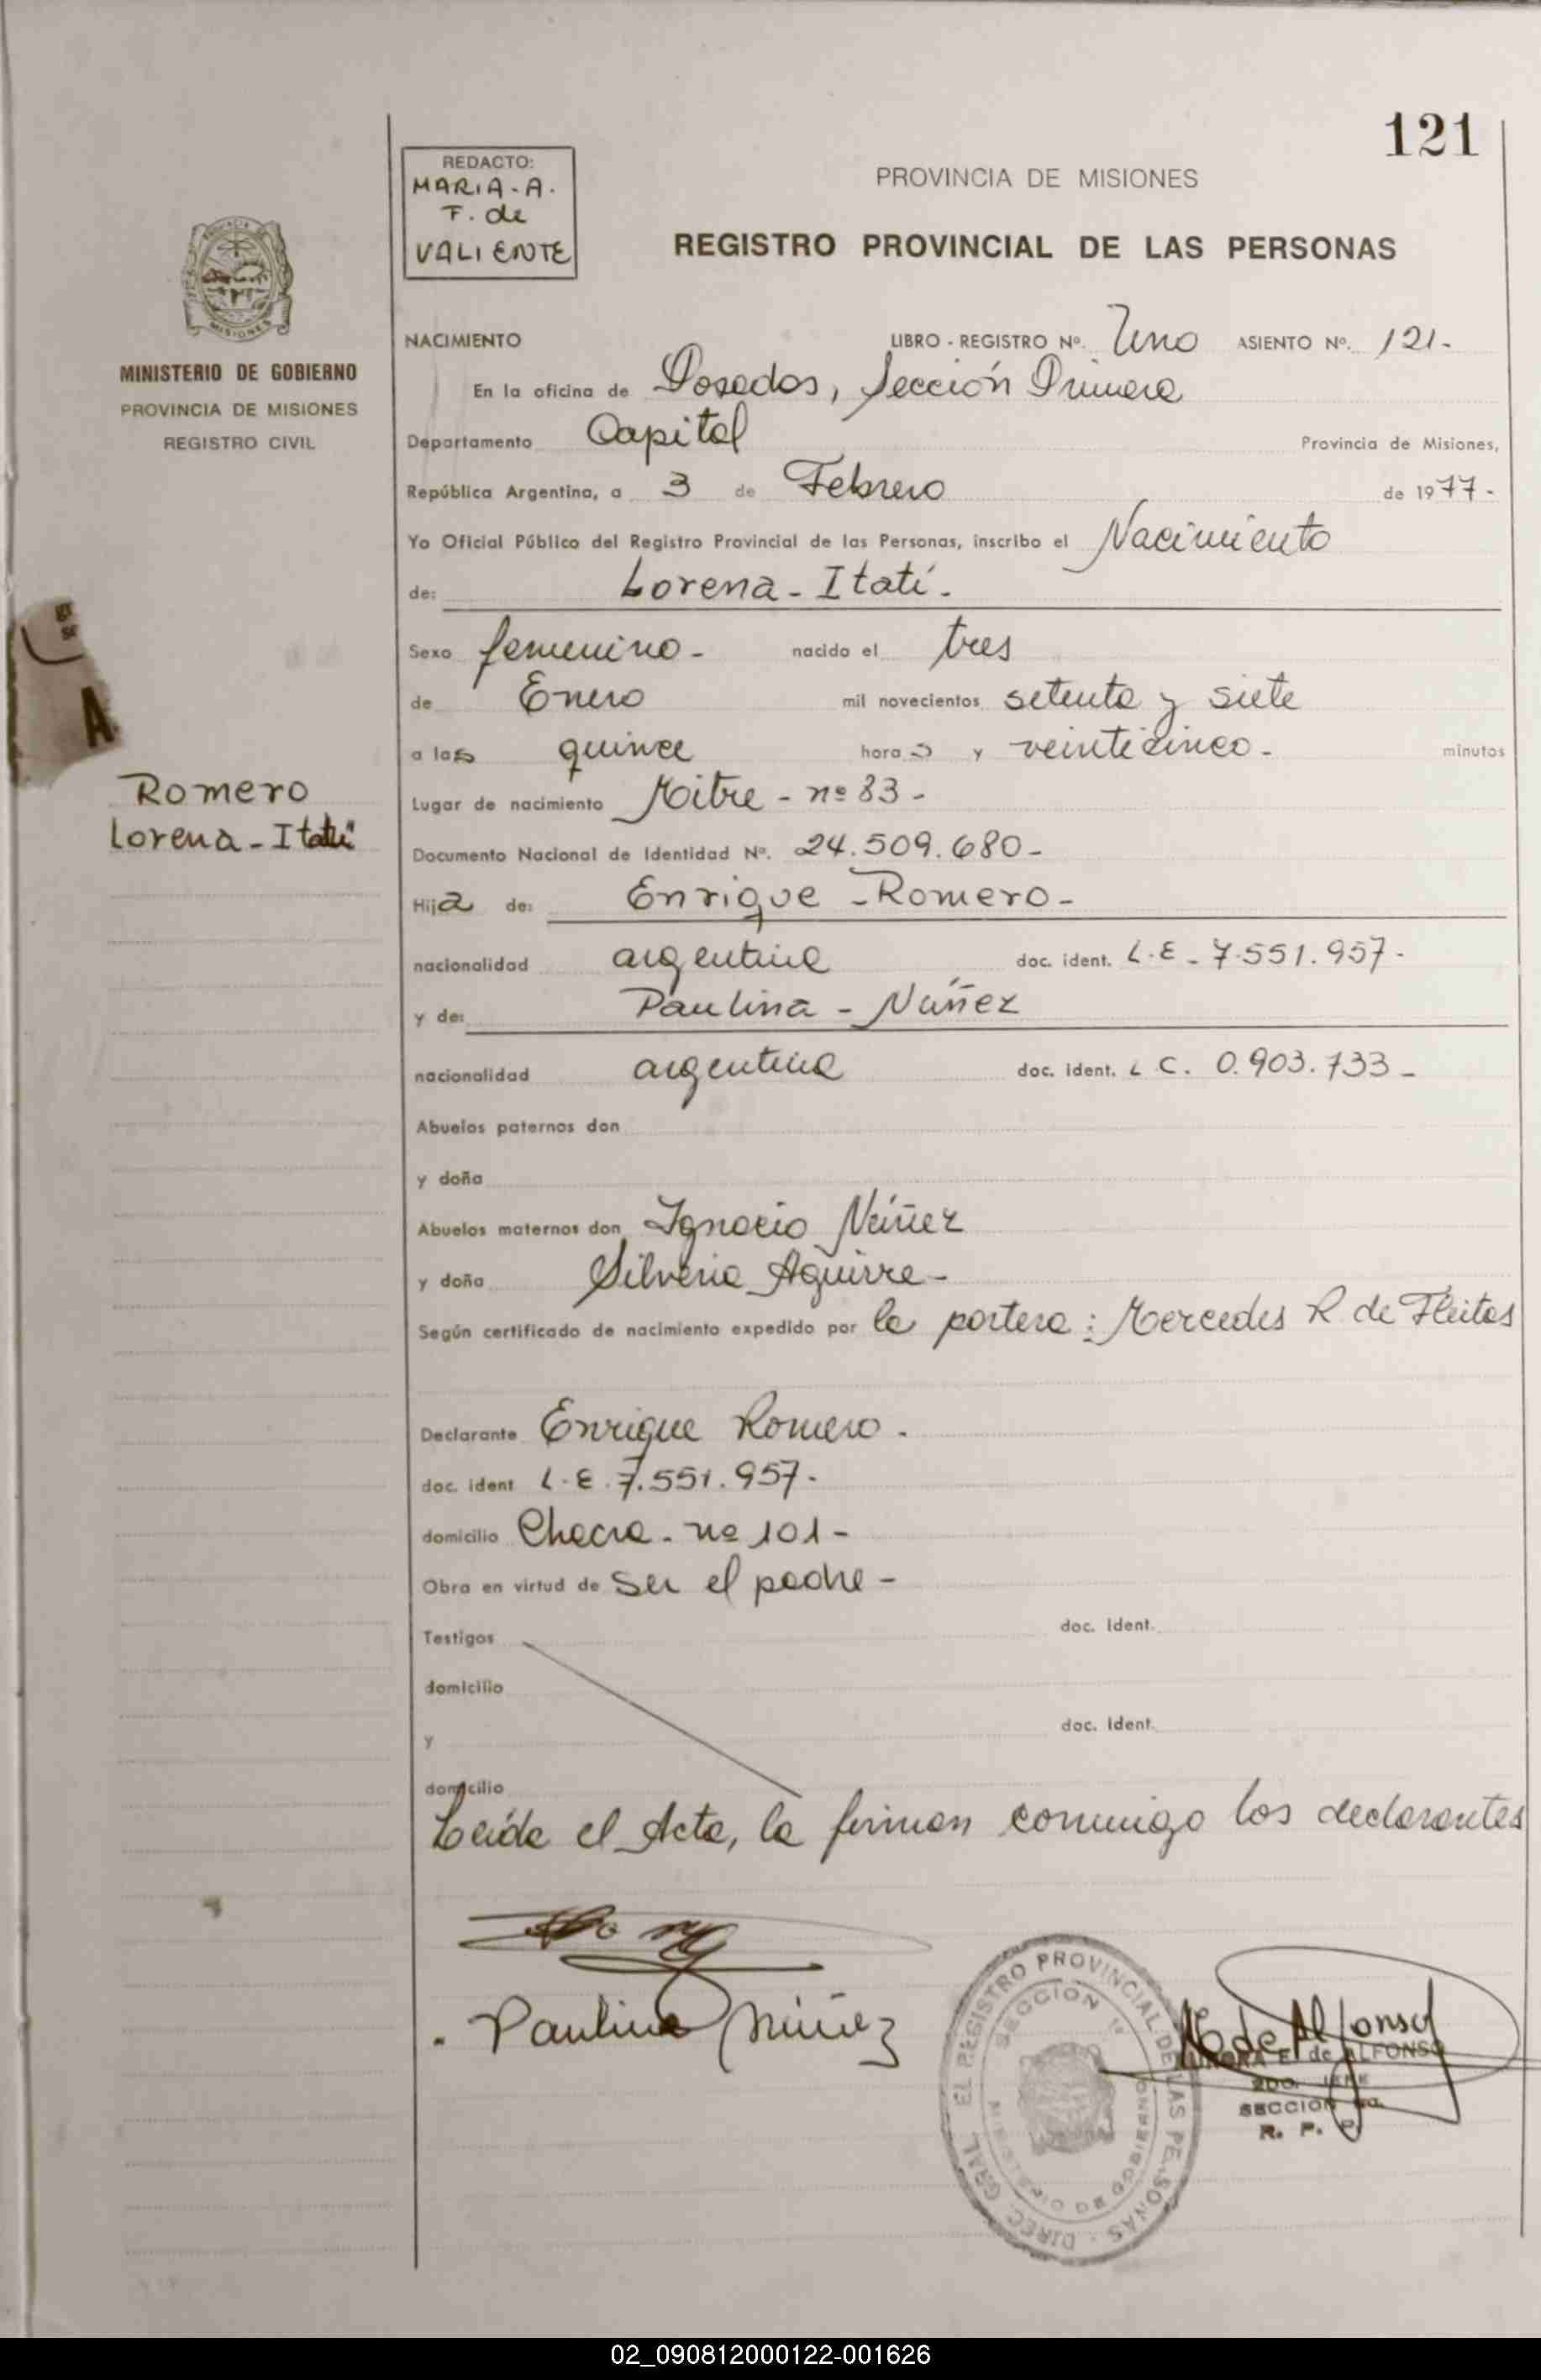 121
REDACTO:
MARIA-A.
F. de
VALIENTE
PROVINCIA DE MISIONES
REGISTRO PROVINCIAL DE LAS PERSONAS
MISIONES
MINISTERIO DE GOBIERNO
PROVINCIA DE MISIONES
REGISTRO CIVIL
NACIMIENTO LIBRO - REGISTRO Nº. Uno ASIENTO Nº. 121.-
En la oficina de Posadas, Sección Primera
Departamento Capital Provincia de Misiones,
República Argentina, a 3 de Febrero de 1977-
Yo Oficial Público del Registro Provincial de las Personas, inscribo el Nacimiento
de: Lorena - Itatí.
Sexo femenino - nacido el tres
de Enero mil novecientos setenta y siete
a las quince horas y veinticinco - minutos
Lugar de nacimiento Mitre - nº 83 -
Romero
Lorena - Itatí
Documento Nacional de Identidad Nº. 24.509.680-
Hija de: Enrique - Romero -
nacionalidad argentina doc. ident. L.E - 7.551.957-
y de: Paulina - Núñez
nacionalidad argentina doc. ident. L C. 0.903.733 -
Abuelos paternos don
y doña
Abuelos maternos don Ignacio Núñez
y doña Silveria Aguirre -
Según certificado de nacimiento expedido por la partera: Mercedes R de Fleitas
Declarante Enrique Romero.
doc. ident L.E. 7.551.957-
domicilio Chacra - nº 101 -
Obra en virtud de ser el padre -
Testigos doc. ident.
domicilio
y doc. ident.
domicilio
Leída el Acta, la firman conmigo los declarantes
Paulina Núñez
DIREC. GRAL. EL REGISTRO PROVINCIAL DE LAS PERSONAS
SECCION 1ª
MINISTERIO DE GOBIERNO
A. de Alfonso
AURORA E. de ALFONSO
2DO. JEFE
SECCION 1a.
R. P. P.
02_090812000122-001626